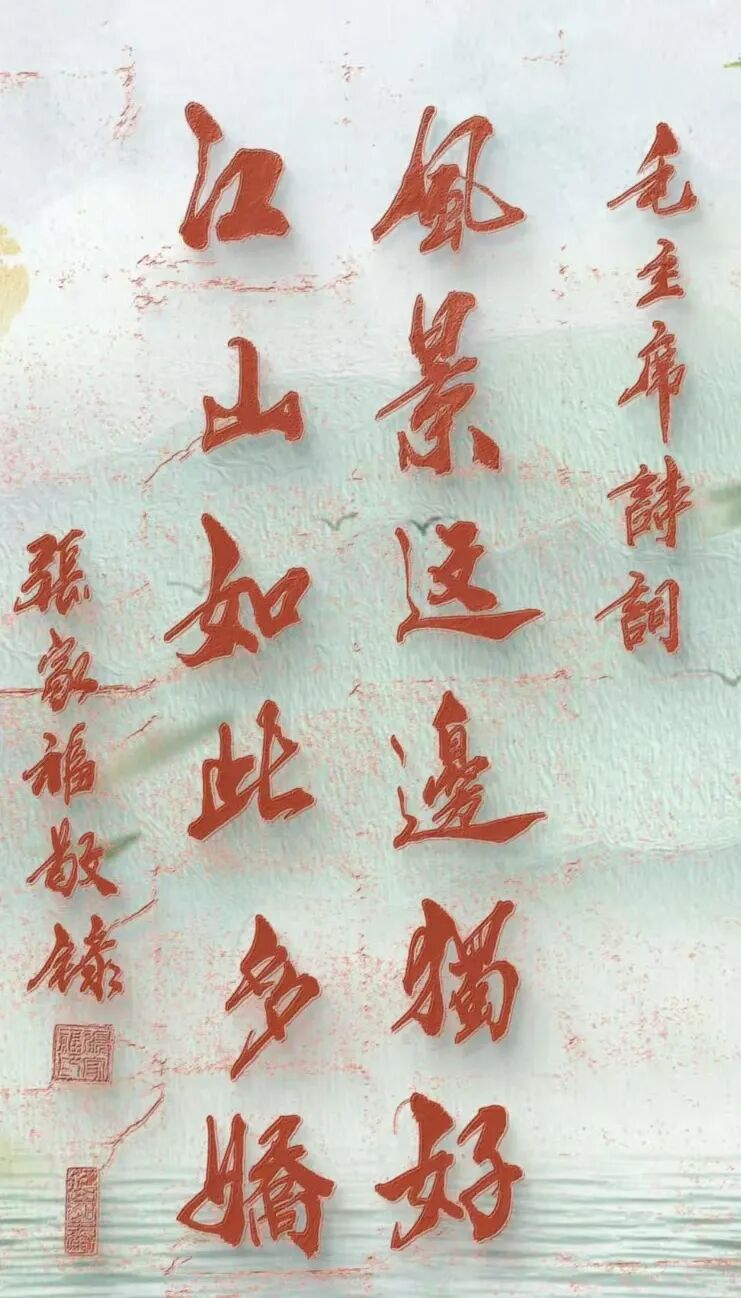 毛主席詩詞
風景这邊獨好
江山如此多嬌
張家福敬錄